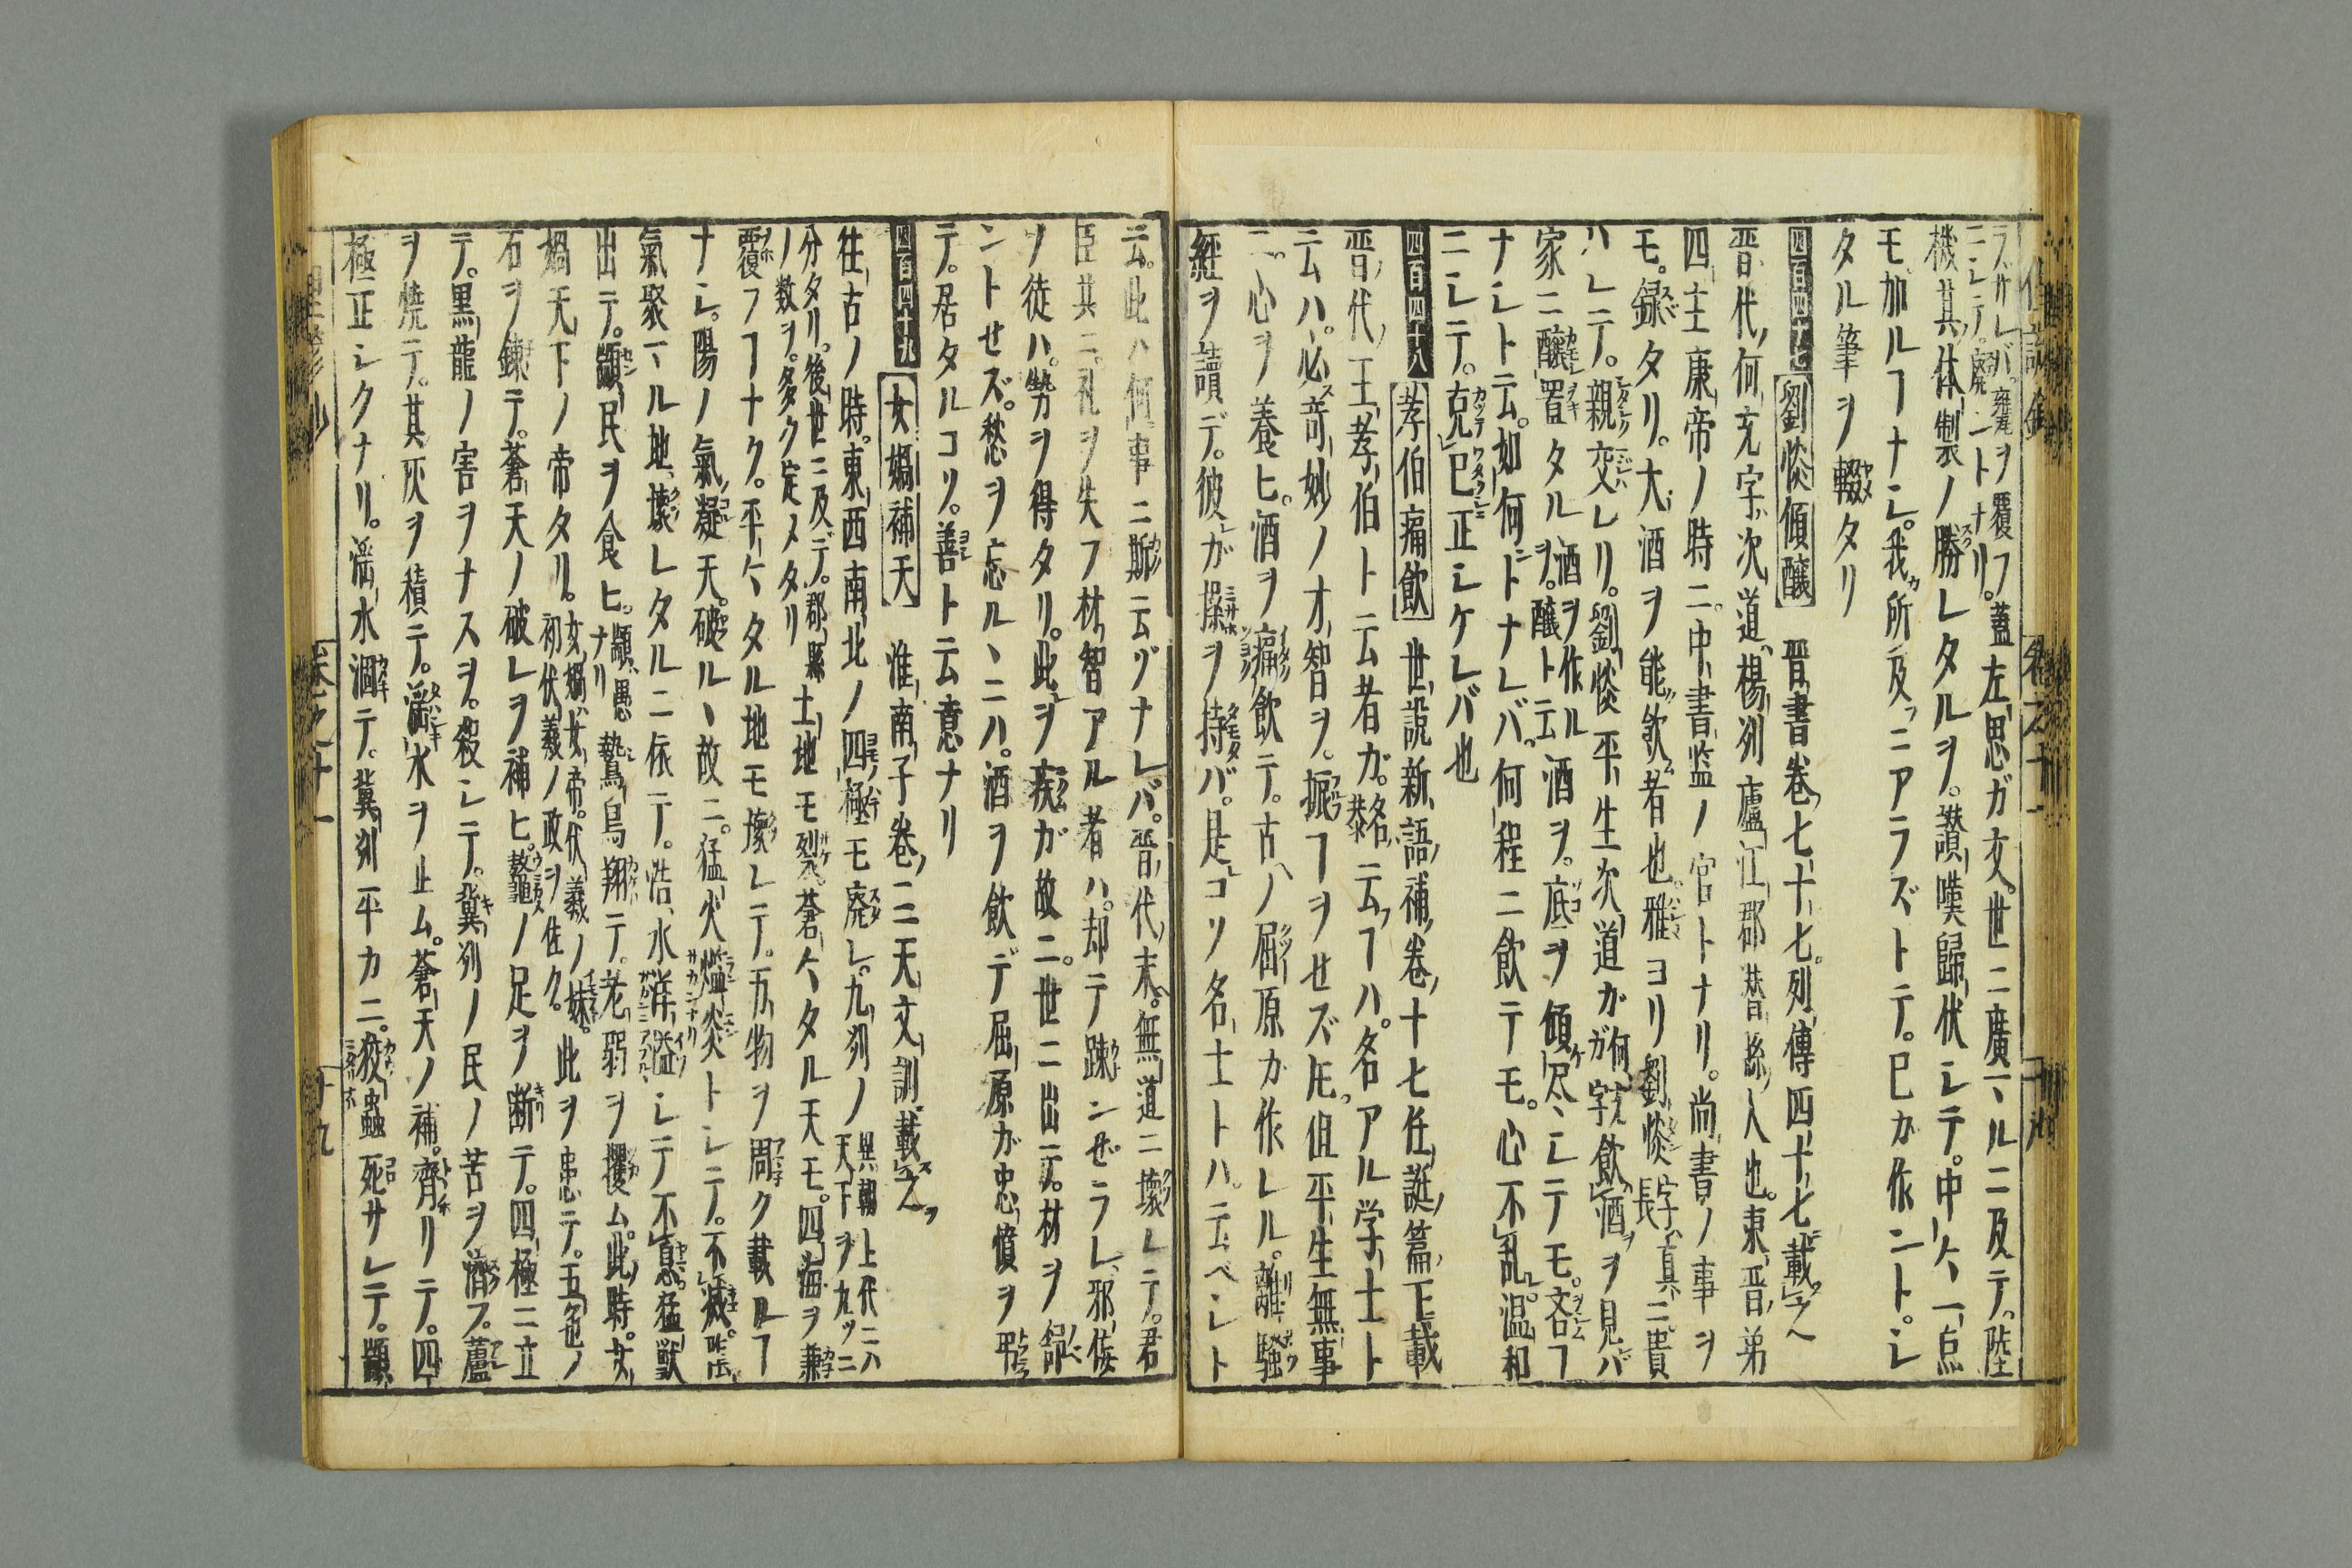 ズサレバ甕ヲ覆フ蓋左思ガ文世ニ廣マルニ及テ陸
機其体製ノ勝レタルヲ讃嘆歸伏シテ中〳〵一点
モ加ルヿナシ我所及ニアラズトテ已カ作ントシ
タル筆ヲ輟タリ
四百四十七 劉惔傾釀 晋書卷七十七列傳四十七載之
晋代何充字次道楊列廬江郡灊縣人也東晋弟
四主康帝ノ時ニ中書監ノ官トナリ尚書ノ事ヲ
モ録タリ大酒ヲ能飲者也雅ヨリ劉惔字真長ニ貴
ハレテ親交レリ劉惔平生次道ガ何充ガ字飲酒ヲ見バ
家ニ釀置タル酒ヲ作ルヲ釀ト云酒ヲ底ヲ傾尽シテモ吝ヿ
ナシト云如何トナレバ何程ニ飲テモ心不乱温和
ニシテ克已正シケレバ也
四百四十八 孝伯痛飲 世説新語補卷十七任誕篇下載
晋代王孝伯ト云者ガ恭名云ヿハ名アル学士ト
云ハ必奇妙ノ才智ヲ振フヿヲせズ𪜈但平生無事
ニ心ヲ養ヒ酒ヲ痛飲テ古ノ屈原カ作レル離騒
經ヲ讀デ彼ガ操ヲ持バ是コソ名士トハ云ベシト
云此ハ何事ニ斯云ゾナレバ晋代末無道ニ壊レテ君
臣其ニ礼ヲ失フ材智アル者ハ却テ踈ンぜラレ邪侫
ノ徒ハ勢ヲ得タリ此ヲ疾ガ故ニ世ニ出テ材ヲ舒
ントせズ愁ヲ忘ルヽニハ酒ヲ飲デ屈原ガ忠憤ヲ弔
テ居タルコソ善ト云意ナリ
四百四十九 女媧補天 淮南子卷三天文訓載之
往古ノ時東西南北ノ四極モ廃レ九列ノ異朝上代ニハ天下ヲ九ツニ
分タリ後世ニ及デ郡縣ノ数ヲ多ク定メタリ土地モ裂蒼〳〵タル天モ四海ヲ兼
覆フヿナク平〳〵タル地モ壊レテ万物ヲ周ク載ルヿ
ナシ陽ノ氣凝天破ルヽ故ニ猛火爁炎トシテ不滅陰
氣聚マル地壊レタルニ依テ浩水洋溢シテ不息猛獣
出テ顓民ヲ食ヒ顓愚ナリ鷙鳥翔テ老弱ヲ攫ム此時女
媧天下ノ帝タル女媧女帝伏羲ノ妹初伏羲ノ政ヲ佐ク此ヲ患テ五色ノ
石ヲ錬テ蒼天ノ破レヲ補ヒ鼇ノ足ヲ断テ四極ニ立
テ黒龍ノ害ヲナスヲ殺シテ冀列ノ民ノ苦ヲ濟フ蘆
ヲ燒テ其灰ヲ積テ滛水ヲ止ム蒼天ノ補齊リテ四
極正シクナリ滛水涸テ冀列平カニ狡蟲死サレテ顓
卷之十一
十九